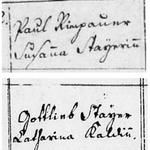 Paul Rinpauer
Susanna Stayerin
Gottlieb Stayer
Catharina Kaldin.